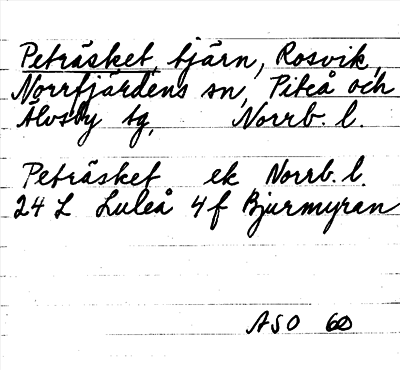 Peträsket, tjärn, Rosvik,
Norrfjärdens sn, Piteå och
Älvsby tg, Norrb. l.
Peträsket ek Norrb. l.
24 L Luleå 4f Bjurmyran
ASO 60